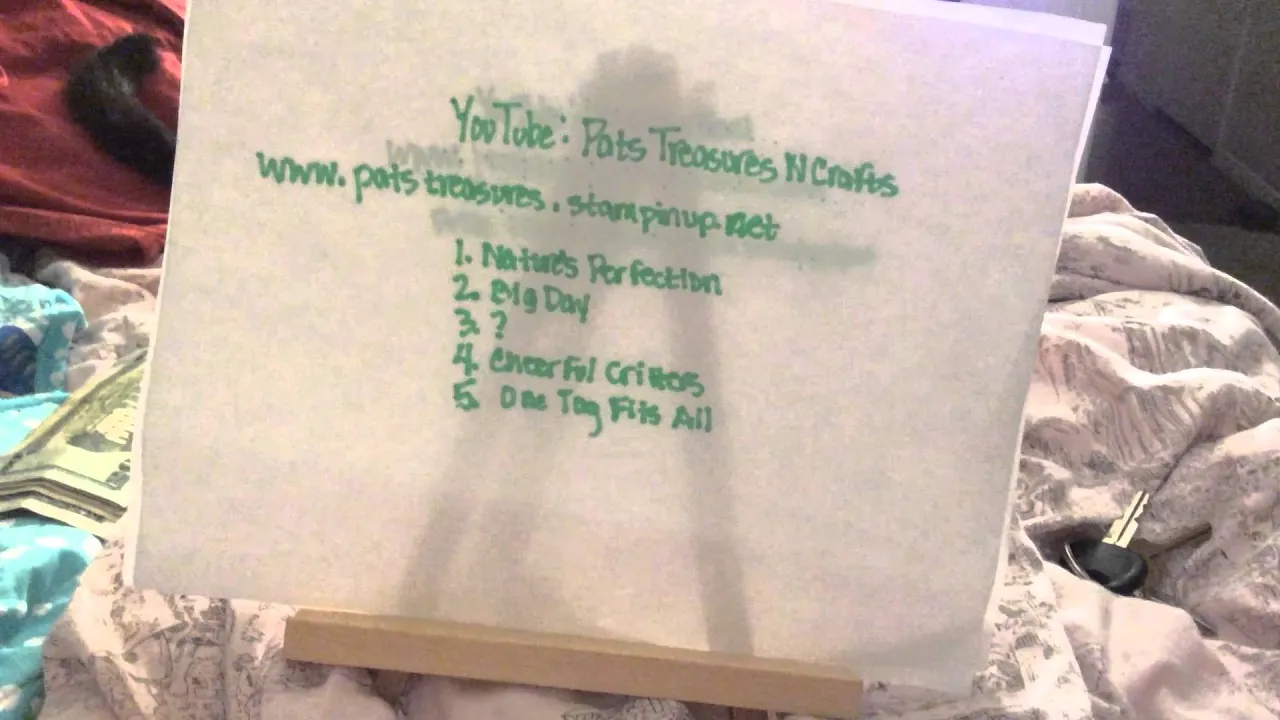 YouTube: Pats Treasures N Crafts
www.patstreasures.stampinup.net
1. Nature's Perfection
2. Big Day
3. ?
4. Cheerful Critters
5. One Tag Fits All